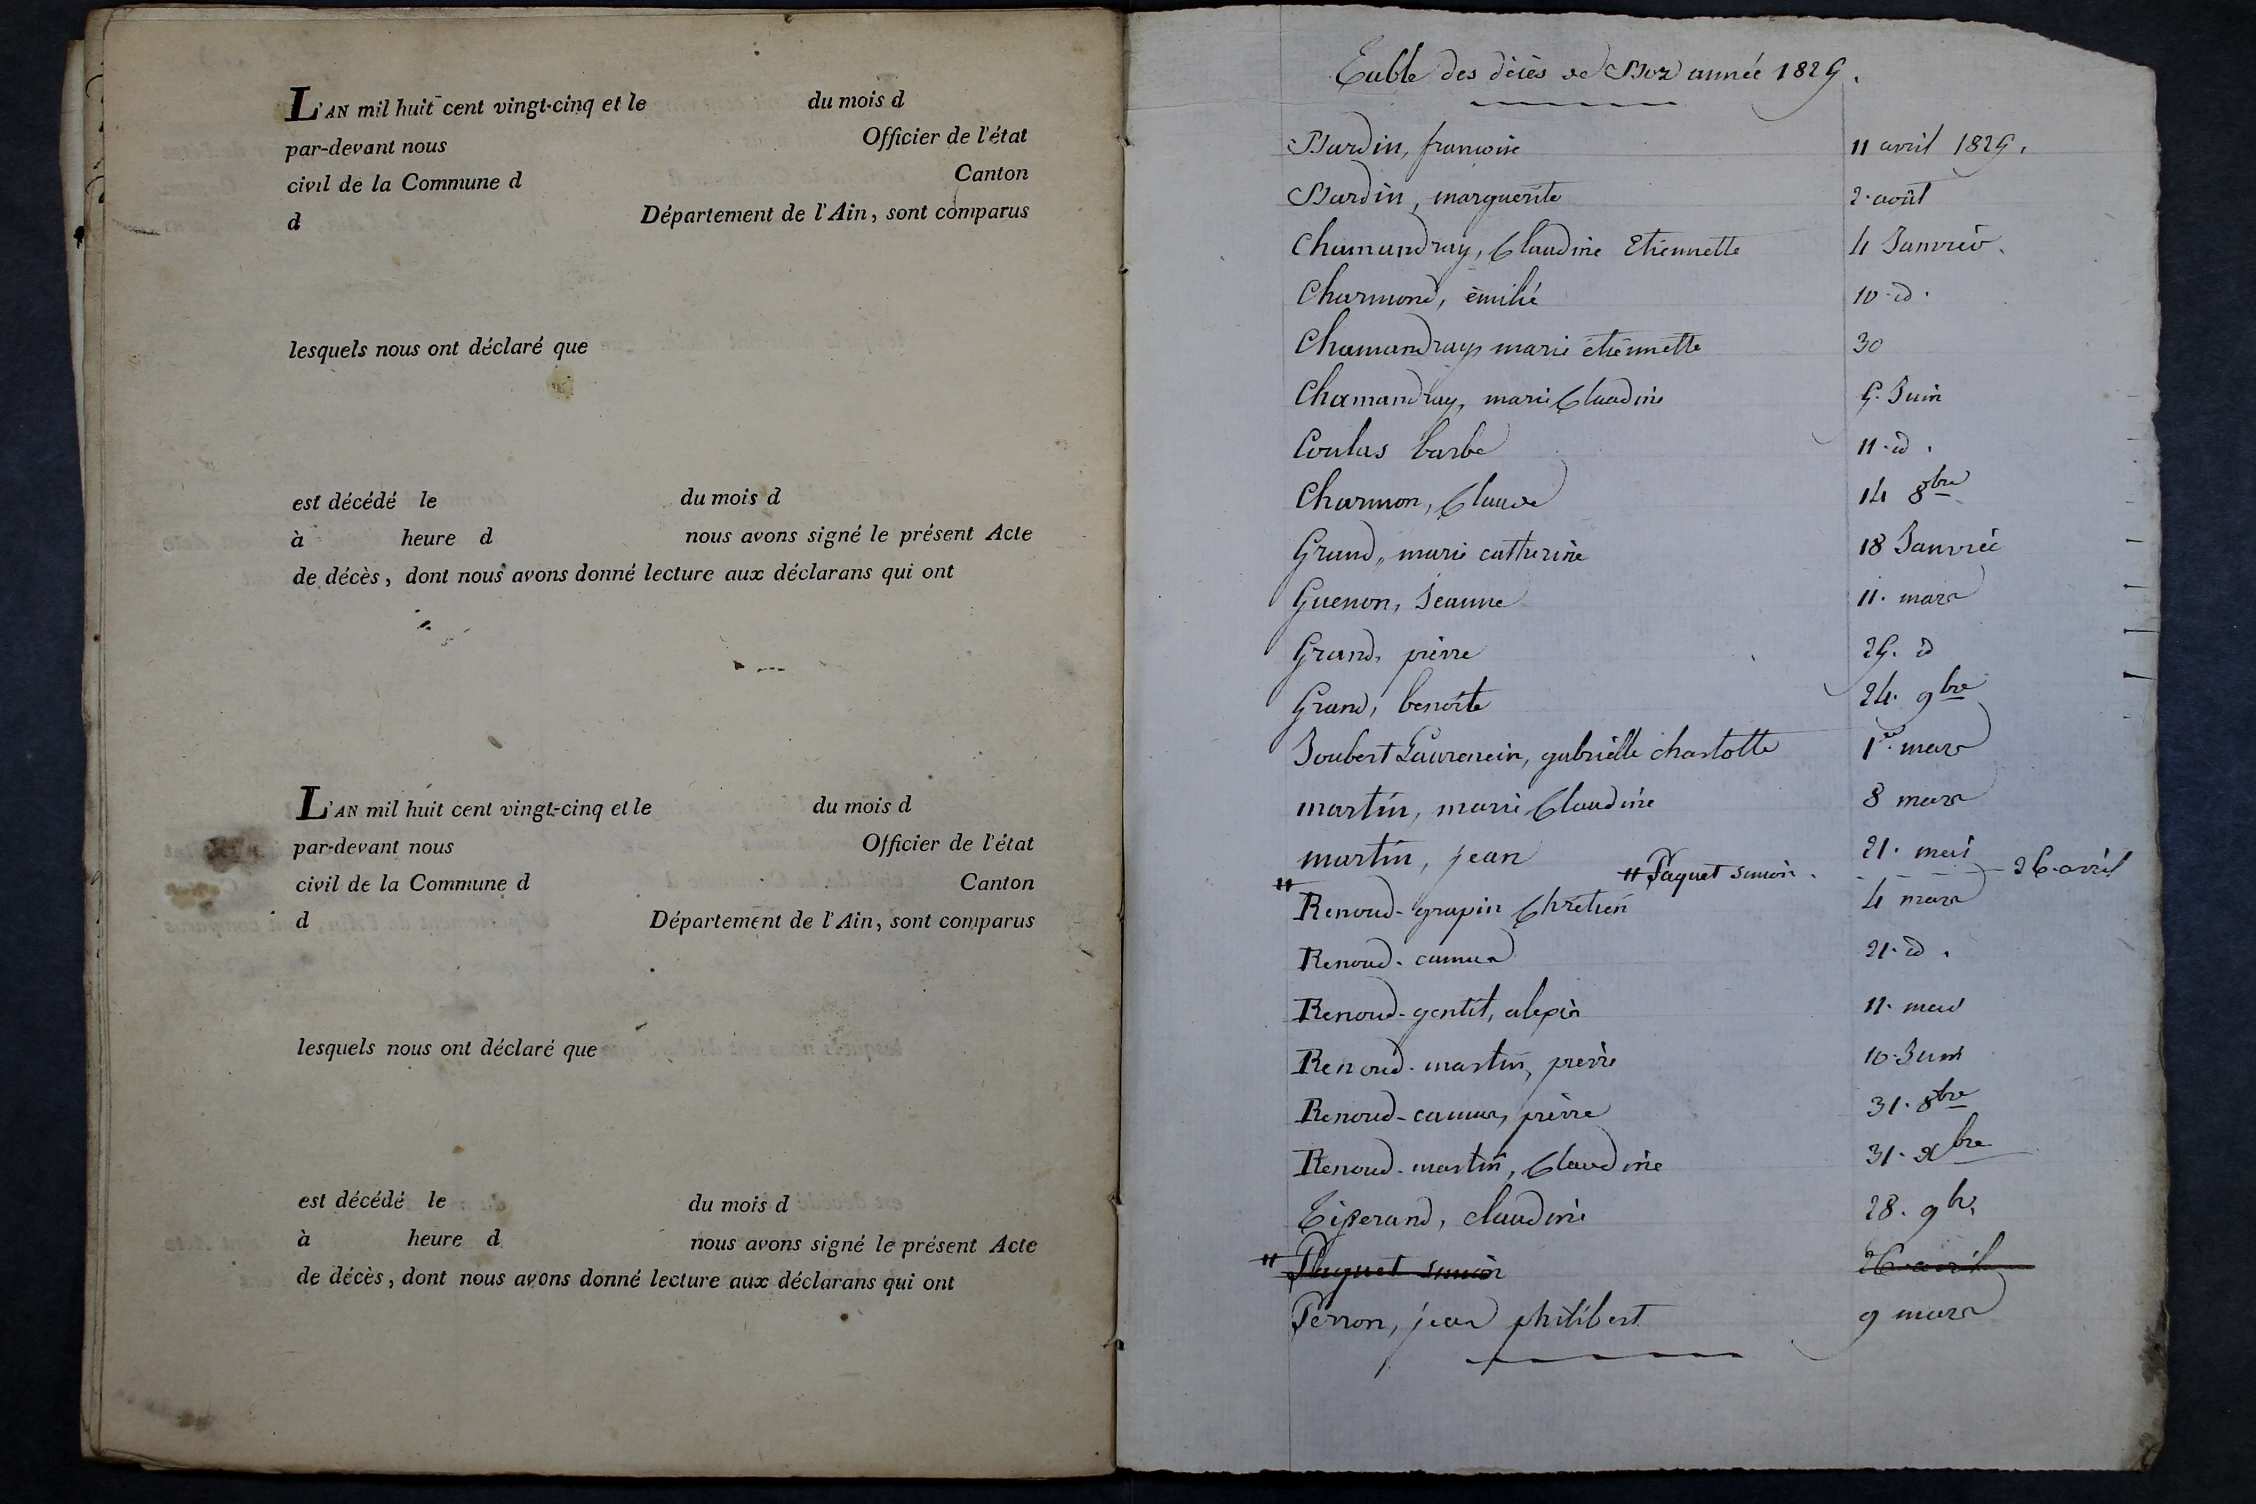 L'AN mil huit cent vingt-cinq et le du mois d
par-devant nous Officier de l'état
civil de la Commune d Canton
d Département de l'Ain, sont comparus
lesquels nous ont déclaré que
est décédé le du mois d
à heure d nous avons signé le présent Acte
de décès, dont nous avons donné lecture aux déclarans qui ont
L'AN mil huit cent vingt-cinq et le du mois d
par-devant nous Officier de l'état
civil de la Commune d Canton
d Département de l'Ain, sont comparus
lesquels nous ont déclaré que
est décédé le du mois d
à heure d nous avons signé le présent Acte
de décès, dont nous avons donné lecture aux déclarans qui ont
Table des décès de Boz année 1825.
Bardin, francoise 11 avril 1825.
Bardin, marguerite 2. août
Chamandray, Claudine Etiennette 4 Janvier.
Charmond, émilie 10. id.
Chamandray, marie étiennette 30
Chamandray, marie Claudine 5. Juin
Coulas barbe 11. id.
Charmon, Claude 14 8bre
Grand, marie catherine 18 Janvier
Guenon, Jeanne 11. mars
Grand, pierre 25. id
Grand, benoite 24. 9bre
Joubert Laurencin, gabrielle charlotte 1er mars
martin, marie Claudine 8 mars
martin, jean 21. mai
" Paquet simon. 26. avril
" Renoud-grapin Chrétien 4 mars
Renoud-camus 21. id.
Renoud-gentit, alexis 11. mai
Renoud-martin, pierre 10. Juin
Renoud-camus, pierre 31. 8bre
Renoud-martin, Claudine 31. Xbre
Tisserand, claudine 28. 9bre
" Paquet simon 26 avril
Perron, jean philibert 9 mars